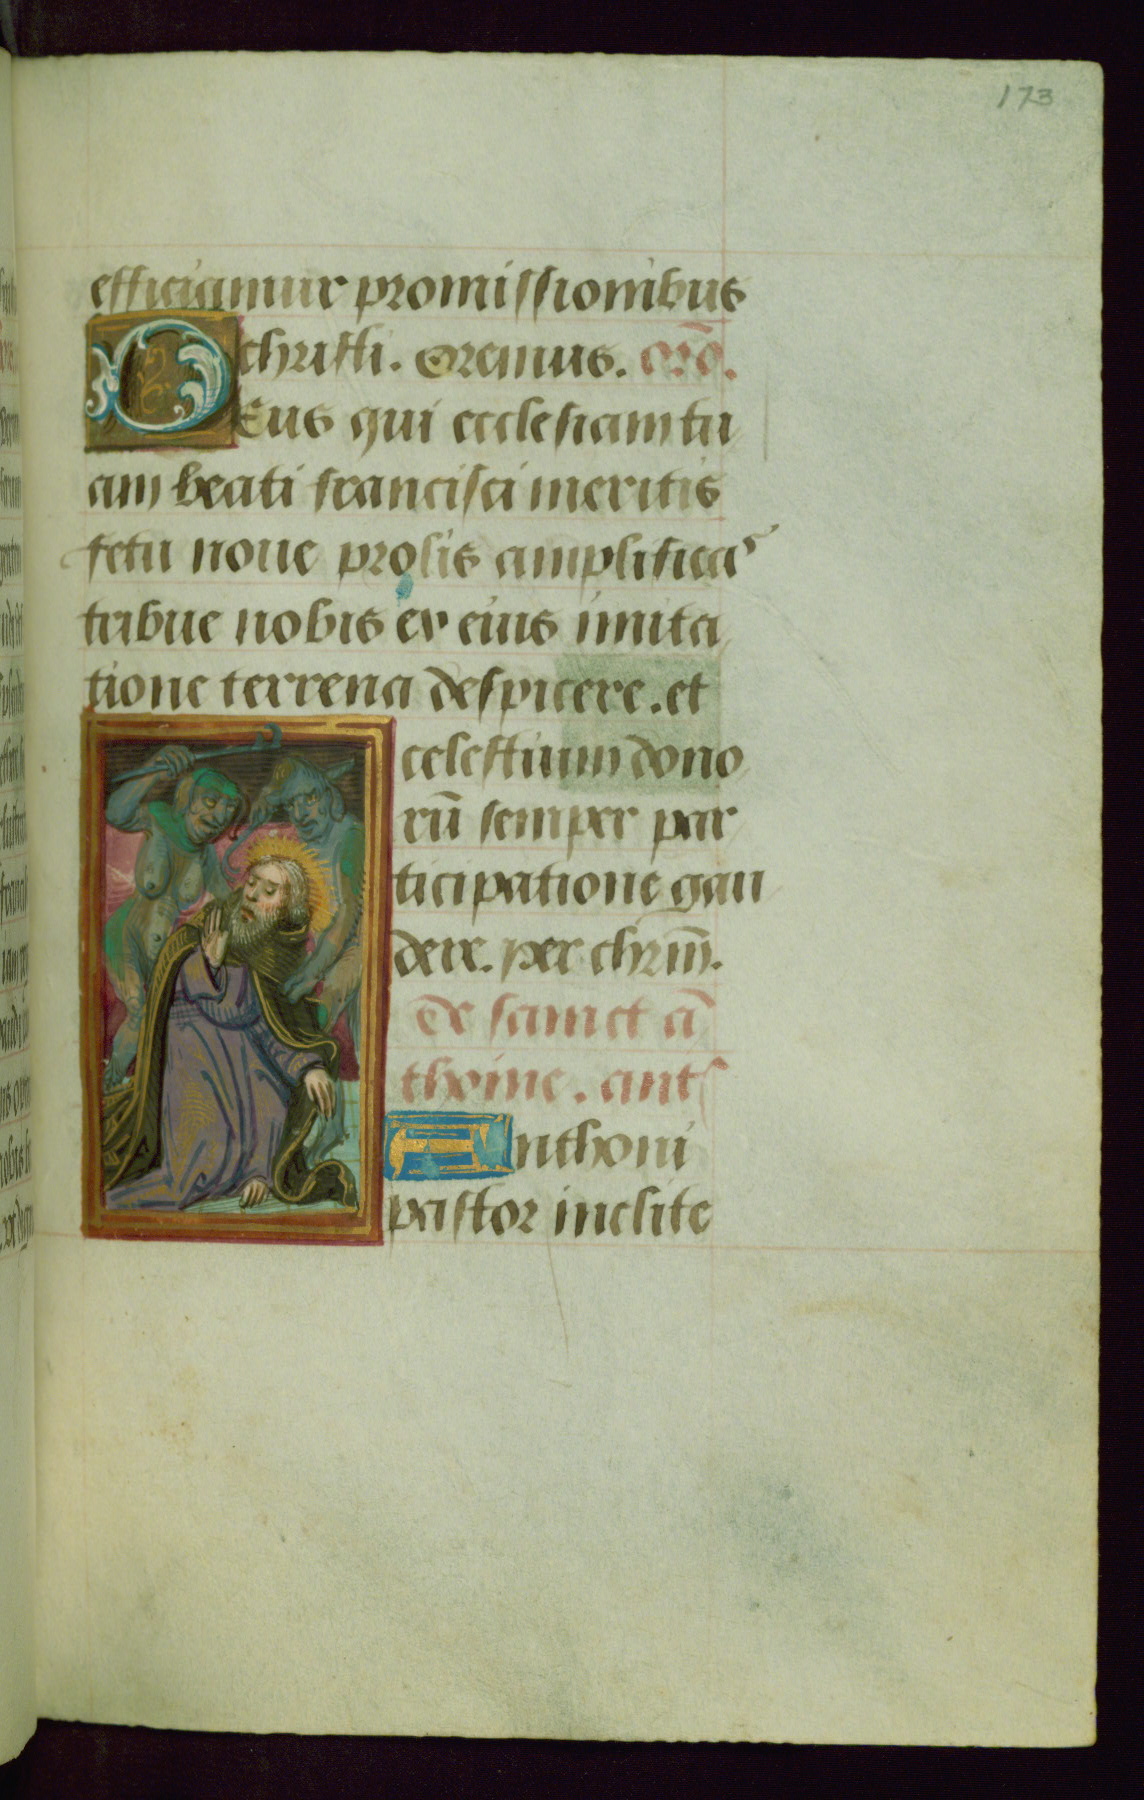 173
efficiamur promissionibus
christi. Oremus. orõ.
DEus qui ecclesiam tu
am beati francisci meritis
fetu noue prolis amplifica
tribue nobis ex eius imita
tione terrena despicere. et
celestium dono
rũ semper par
ticipatione gau
dere. per christm̃.
De sanct ã
thoine. ant
Anthoni
pastor inclite